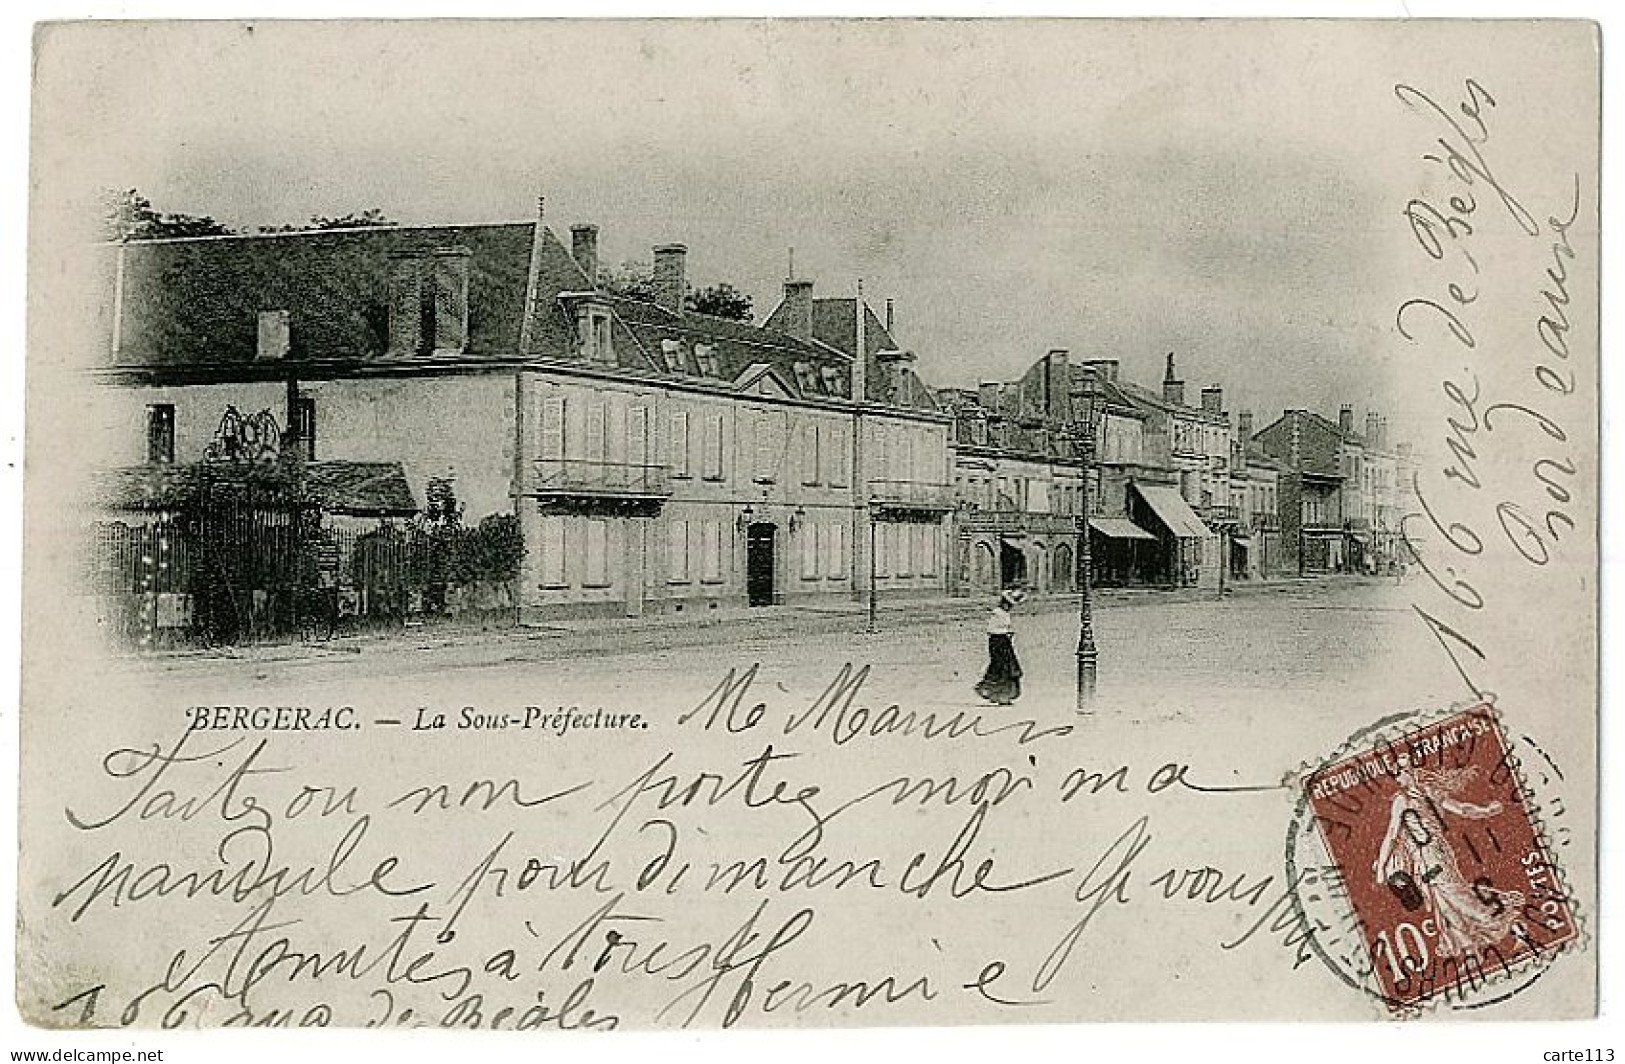 BERGERAC. — La Sous-Préfecture.
Mr Marcus
Faite ou non portez moi ma
pandule pour dimanche Je vous prie
Amitiés à tous
Fermie
166 rue de Bègles
166 rue de Bègles
Bordeaux
RÉPUBLIQUE FRANÇAISE
10c
POSTES
GIRONDE
COURS
5
11 -8
10
delcampe.net
carte113